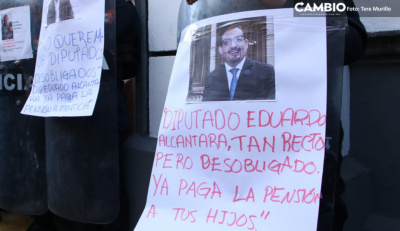 CAMBIO
Foto: Tere Murillo
QUEREM
DIPUTAD
DESOBLIGADOS
ALCANTA
RA YA PAGA LA
"DIPUTADO EDUARDO
ALCANTARA, TAN RECTO
PERO DESOBLIGADO.
YA PAGA LA PENSIÓN
A TUS HIJOS."